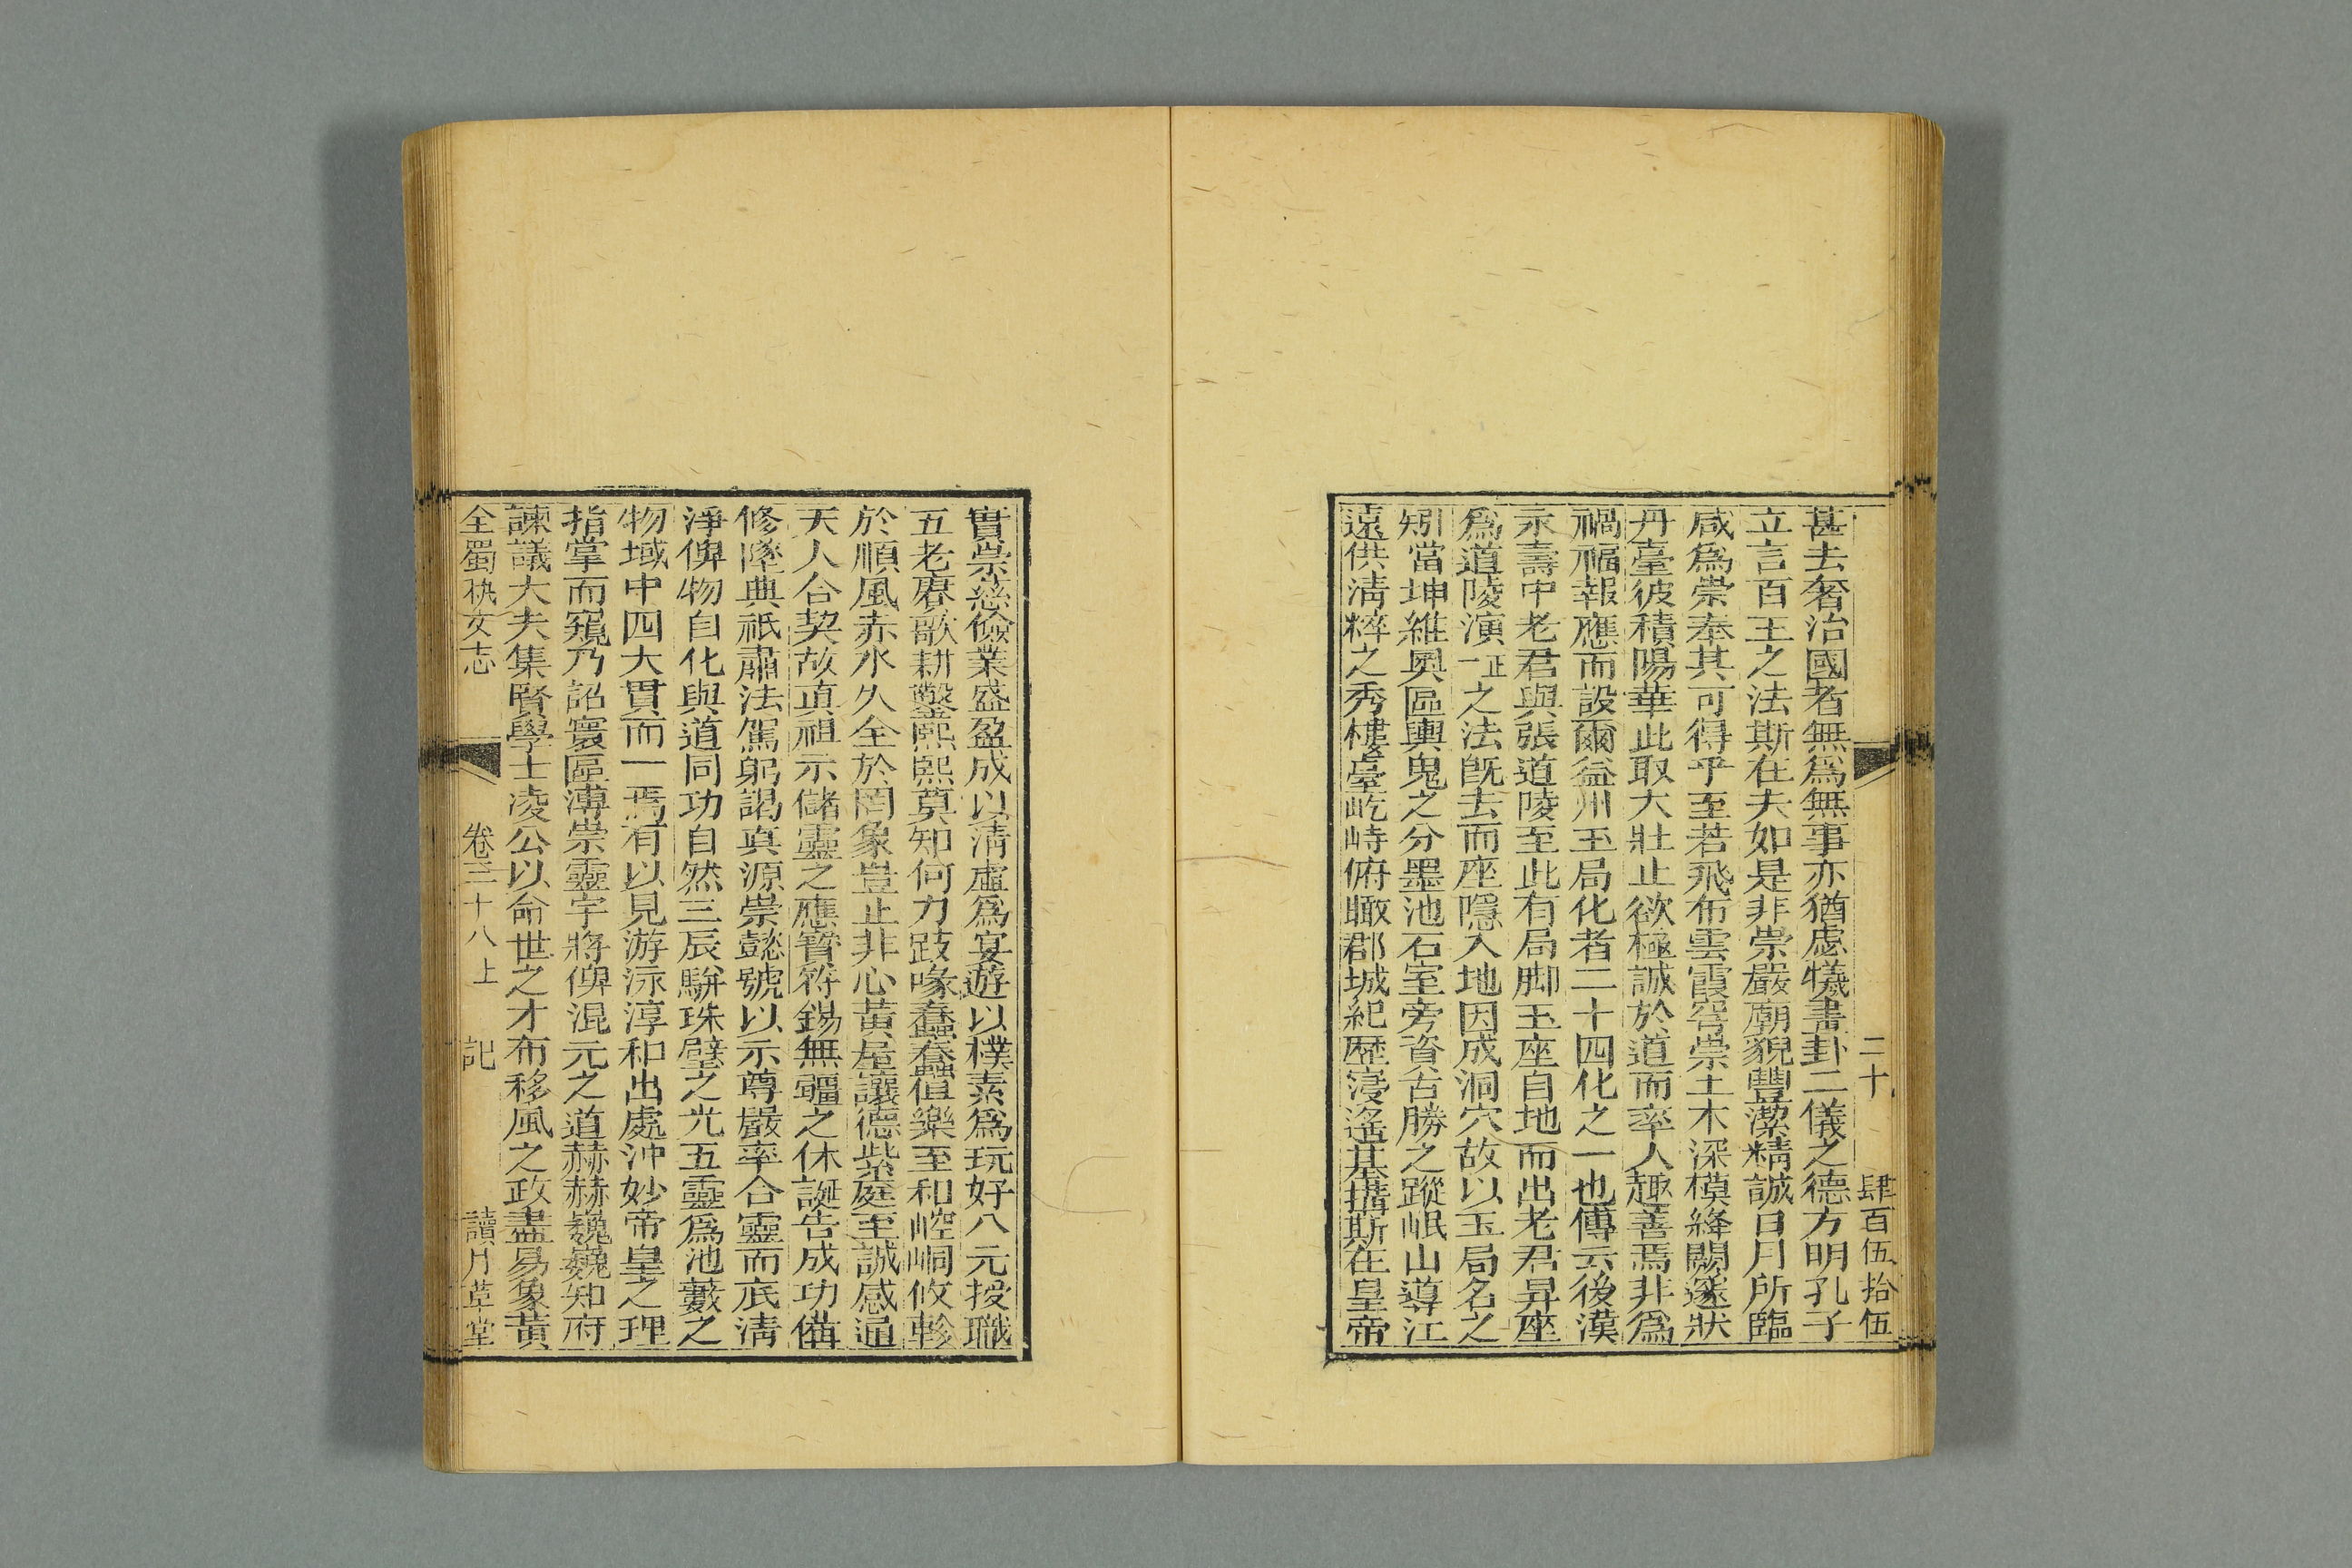 二十 肆百伍拾伍
甚去奢治國者無爲無事亦猶慮犧畫卦二儀之德方明孔子
立言百王之法斯在夫如是非崇嚴廟貌豐潔精誠日月所臨
咸爲崇奉其可得乎至若飛布雲霞窅崇土木深模絳闕邃狀
丹臺彼積陽華此取大壯止欲極誠於道而率人趣善焉非爲
禍福報應而設爾益州玉局化者二十四化之一也傳云後漢
永壽中老君與張道陵至此有局脚玉座自地而出老君昇座
爲道陵演正一之法旣去而座隱入地因成洞穴故以玉局名之
矧當坤維奧區輿鬼之分墨池石室旁資古勝之蹤岷山導江
遠供清粹之秀樓臺屹峙俯瞰郡城紀歷寖遙基搆斯在皇帝
實崇慈儉業盛盈成以清虛爲宴遊以樸素爲玩好八元授職
五老賡歌耕鑿熙熙莫知何力跂喙蠢蠢但樂至和崆峒攸軫
於順風赤水久全於罔象豈止非心黃屋讓德紫庭至誠感通
天人合契故眞祖示儲靈之應寶符錫無疆之休誕告成功備
修墜典祇肅法駕躬謁真源崇懿號以示尊嚴率合靈而底清
淨俾物自化與道同功自然三辰駢珠璧之光五靈爲池藪之
物域中四大貫而一焉有以見游泳淳和出處沖妙帝皇之理
指掌而窺乃詔寰區溥崇靈宇將俾混元之道赫赫巍巍知府
諫議大夫集賢學士凌公以命世之才布移風之政盡易象黃
全蜀秇文志 卷三十八上 記 讀月草堂